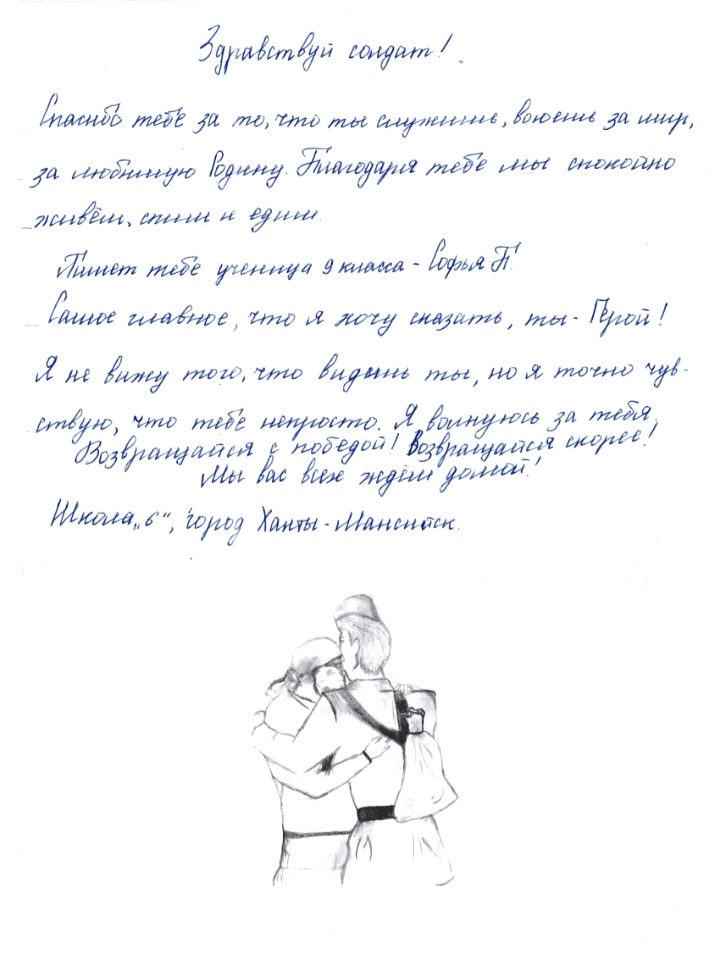 Здравствуй солдат!
Спасибо тебе за то, что ты служишь, воюешь за мир,
за любимую Родину. Благодаря тебе мы спокойно
живём, спим и едим.
Пишет тебе ученица 9 класса - Софья П.
Самое главное, что я хочу сказать, ты - Герой!
Я не вижу того, что видишь ты, но я точно чув-
ствую, что тебе непросто. Я волнуюсь за тебя.
Возвращайся с победой! Возвращайся скорее!
Мы вас всех ждём домой!
Школа „6“, город Ханты-Мансийск.